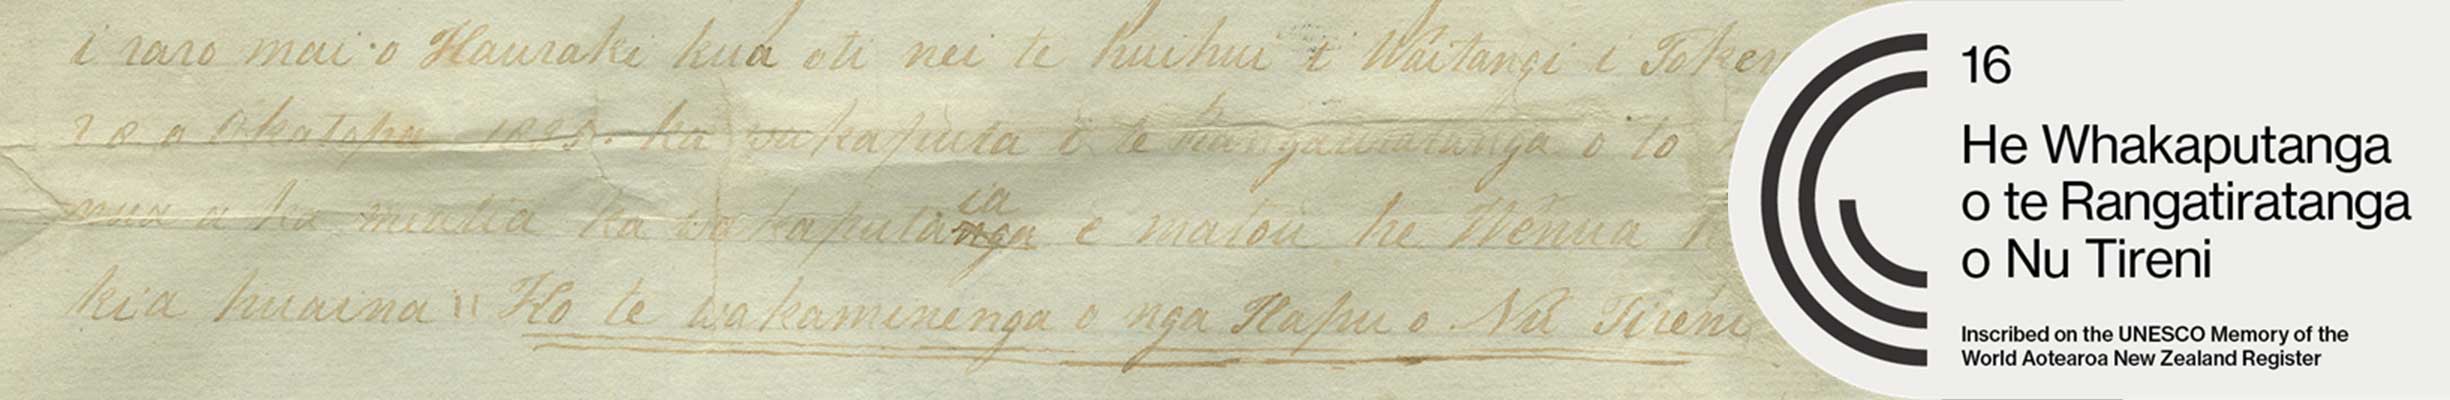 i raro mai o Hauraki kua oti nei te huihui i Waitangi i Token
28 o Okatopu 1835. ka wakaputa i te Rangatiratanga o to
mua a ka meatia ka wakaputaia nga e matou he Wenua
kia huaina "Ko te wakaminenga o nga Hapu o Nu Tireni
16
He Whakaputanga
o te Rangatiratanga
o Nu Tireni
Inscribed on the UNESCO Memory of the
World Aotearoa New Zealand Register